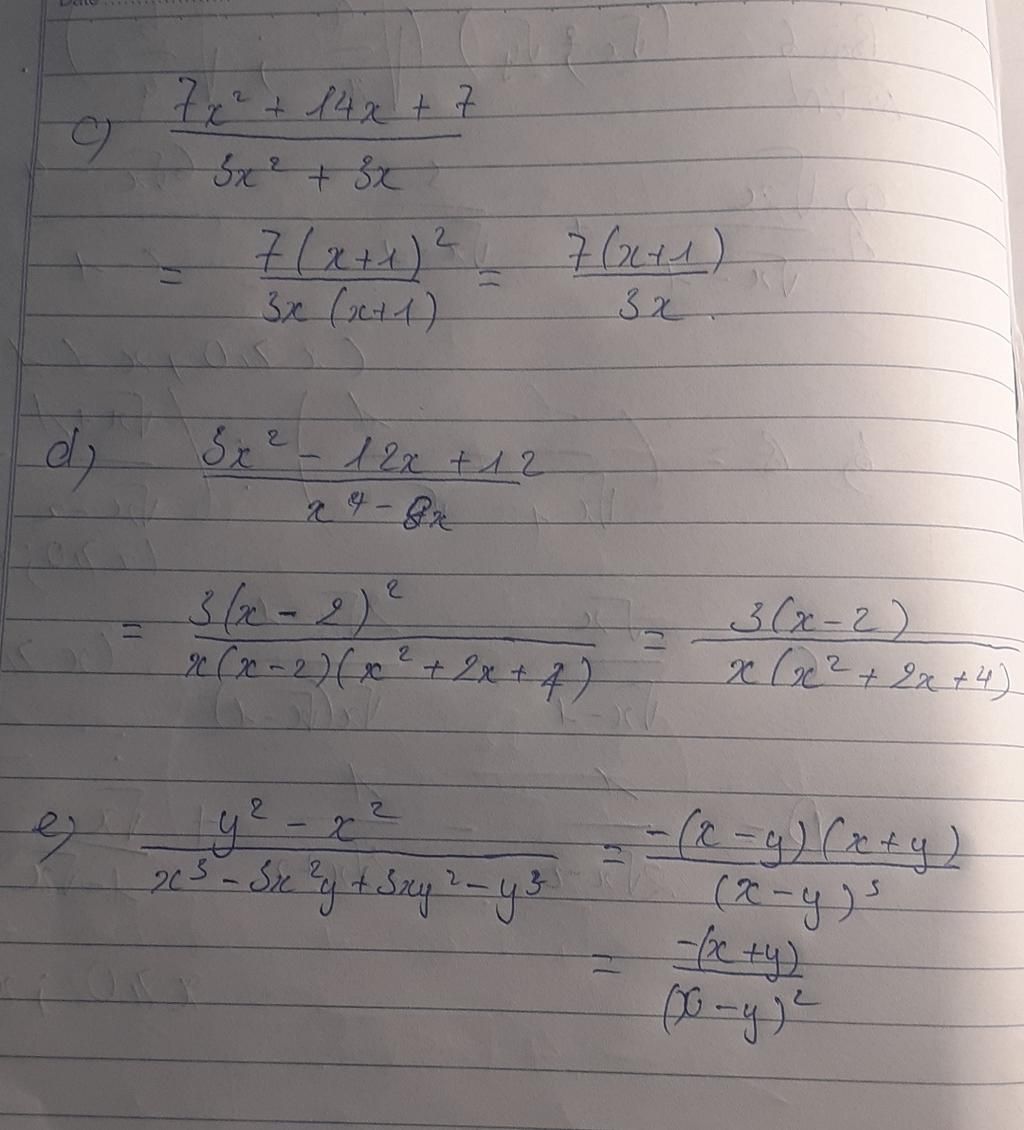 c) \frac{7x^2 + 14x + 7}{3x^2 + 3x}
= \frac{7(x+1)^2}{3x(x+1)} = \frac{7(x+1)}{3x}.
d) \frac{3x^2 - 12x + 12}{x^4 - 8x}
= \frac{3(x-2)^2}{x(x-2)(x^2 + 2x + 4)} = \frac{3(x-2)}{x(x^2 + 2x + 4)}
e) \frac{y^2 - x^2}{x^3 - 3x^2y + 3xy^2 - y^3} = \frac{-(x-y)(x+y)}{(x-y)^3}
= \frac{-(x+y)}{(x-y)^2}